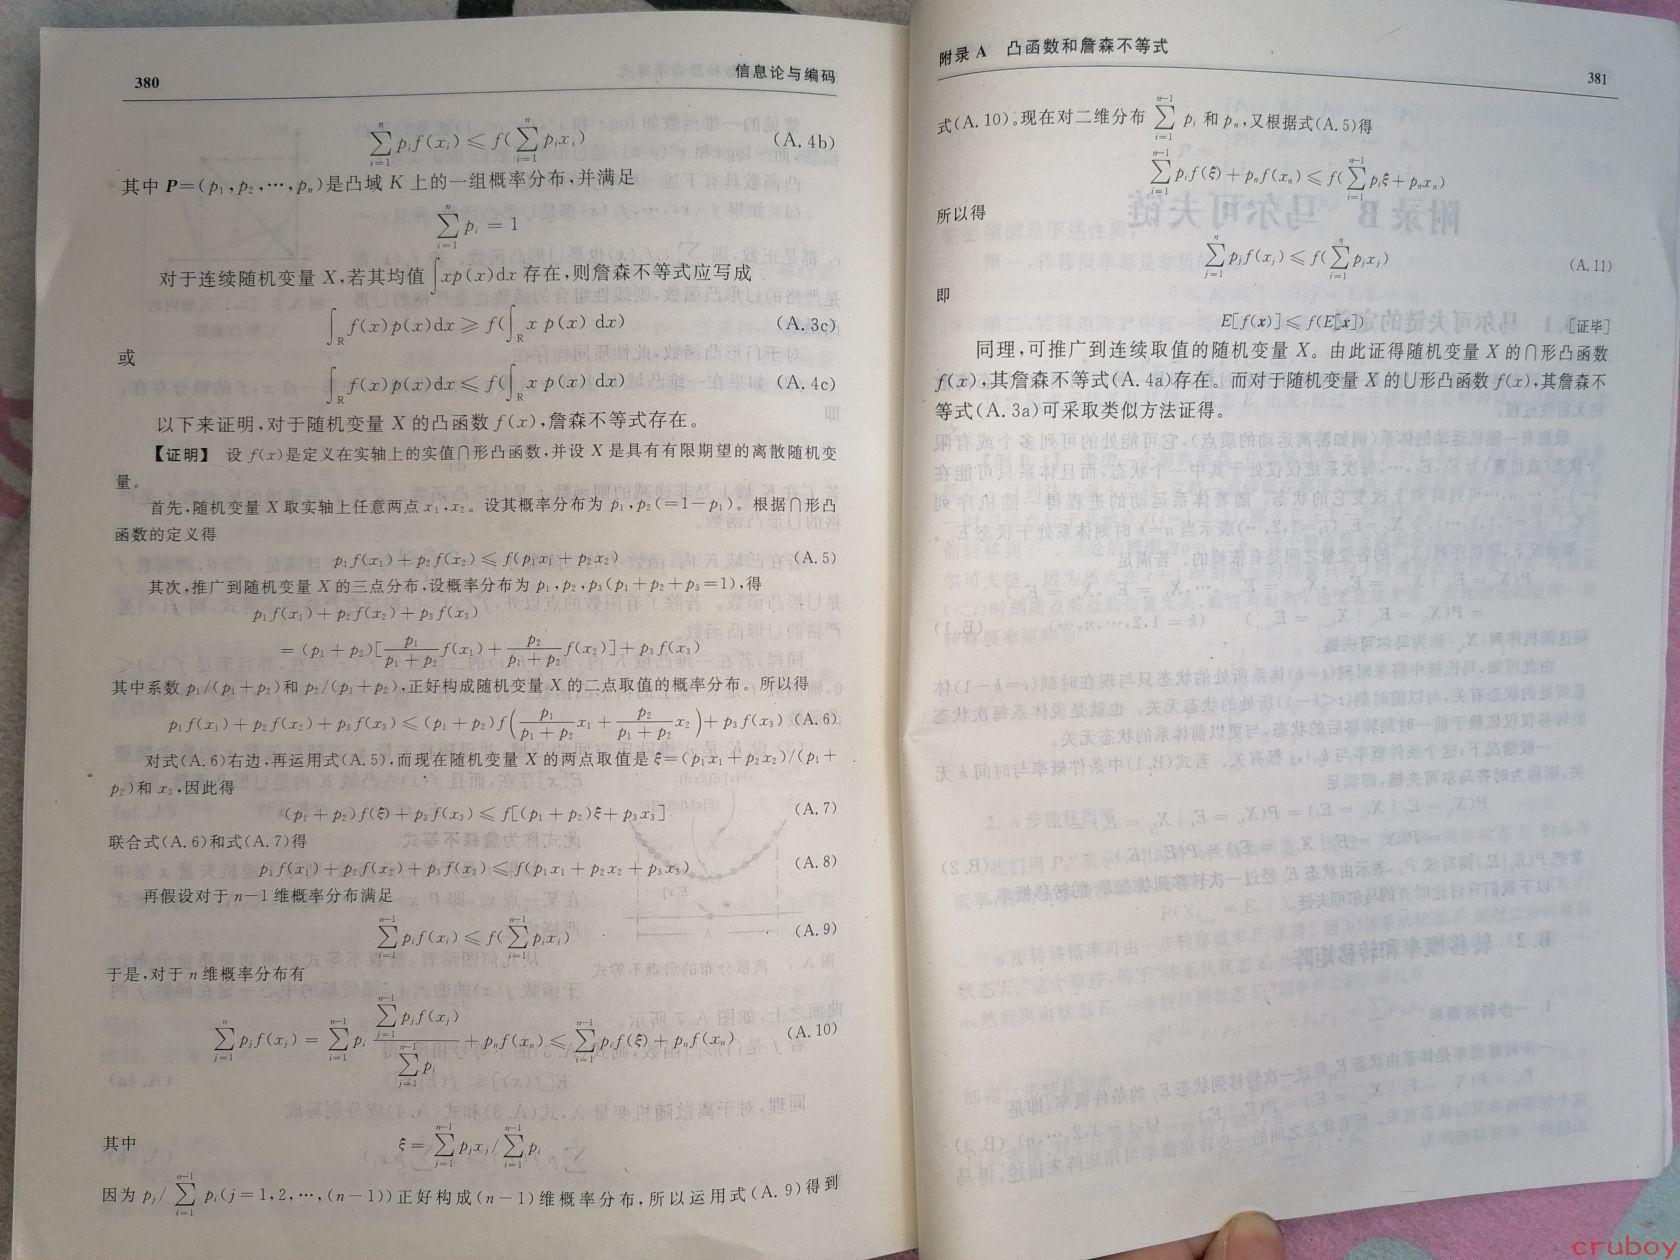 380
信息论与编码
∑_{i=1}^{n} p_i f(x_i) ⩽ f(∑_{i=1}^{n} p_i x_i) (A.4b)
其中 P=(p₁,p₂,…,pₙ)是凸域 K 上的一组概率分布,并满足
∑_{i=1}^{n} p_i = 1
对于连续随机变量 X,若其均值 ∫xp(x)dx 存在,则詹森不等式应写成
∫_R f(x)p(x)dx ⩾ f(∫_R x p(x) dx) (A.3c)
或
∫_R f(x)p(x)dx ⩽ f(∫_R x p(x) dx) (A.4c)
以下来证明,对于随机变量 X 的凸函数 f(x),詹森不等式存在。
【证明】 设 f(x)是定义在实轴上的实值∩形凸函数,并设 X 是具有有限期望的离散随机变
量。
首先,随机变量 X 取实轴上任意两点 x₁,x₂。设其概率分布为 p₁,p₂(=1−p₁)。根据∩形凸
函数的定义得
p₁f(x₁)+p₂f(x₂)⩽f(p₁x₁+p₂x₂) (A.5)
其次,推广到随机变量 X 的三点分布,设概率分布为 p₁,p₂,p₃(p₁+p₂+p₃=1),得
p₁f(x₁)+p₂f(x₂)+p₃f(x₃)
=(p₁+p₂)[p₁/(p₁+p₂) f(x₁)+p₂/(p₁+p₂) f(x₂)]+p₃f(x₃)
其中系数 p₁/(p₁+p₂)和 p₂/(p₁+p₂),正好构成随机变量 X 的二点取值的概率分布。所以得
p₁f(x₁)+p₂f(x₂)+p₃f(x₃)⩽(p₁+p₂)f(p₁/(p₁+p₂) x₁+p₂/(p₁+p₂) x₂)+p₃f(x₃) (A.6)
对式(A.6)右边,再运用式(A.5),而现在随机变量 X 的两点取值是 ξ=(p₁x₁+p₂x₂)/(p₁+
p₂)和 x₃,因此得
(p₁+p₂)f(ξ)+p₃f(x₃)⩽f[(p₁+p₂)ξ+p₃x₃] (A.7)
联合式(A.6)和式(A.7)得
p₁f(x₁)+p₂f(x₂)+p₃f(x₃)⩽f(p₁x₁+p₂x₂+p₃x₃) (A.8)
再假设对于 n−1 维概率分布满足
∑_{i=1}^{n−1} p_i f(x_i)⩽f(∑_{i=1}^{n−1} p_i x_i) (A.9)
于是,对于 n 维概率分布有
∑_{j=1}^{n} p_j f(x_j) = ∑_{i=1}^{n−1} p_i (∑_{j=1}^{n−1} p_j f(x_j))/(∑_{j=1}^{n−1} p_i) + pₙf(xₙ) ⩽ ∑_{i=1}^{n−1} p_i f(ξ)+pₙf(xₙ) (A.10)
其中
ξ=∑_{j=1}^{n−1} p_j x_j/∑_{i=1}^{n−1} p_i
因为 p_j/∑_{i=1}^{n−1} p_i(j=1,2,…,(n−1))正好构成(n−1)维概率分布,所以运用式(A.9)得到
附录 A 凸函数和詹森不等式
381
式(A.10)。现在对二维分布 ∑_{i=1}^{n−1} p_i 和 pₙ,又根据式(A.5)得
∑_{i=1}^{n−1} p_i f(ξ)+pₙf(xₙ)⩽f(∑_{i=1}^{n−1} p_i ξ+pₙxₙ)
所以得
∑_{j=1}^{n} p_j f(x_j)⩽f(∑_{j=1}^{n} p_j x_j) (A.11)
即
E[f(x)]⩽f(E[x]) [证毕]
同理,可推广到连续取值的随机变量 X。由此证得随机变量 X 的∩形凸函数
f(x),其詹森不等式(A.4a)存在。而对于随机变量 X 的∪形凸函数 f(x),其詹森不
等式(A.3a)可采取类似方法证得。
cruboy